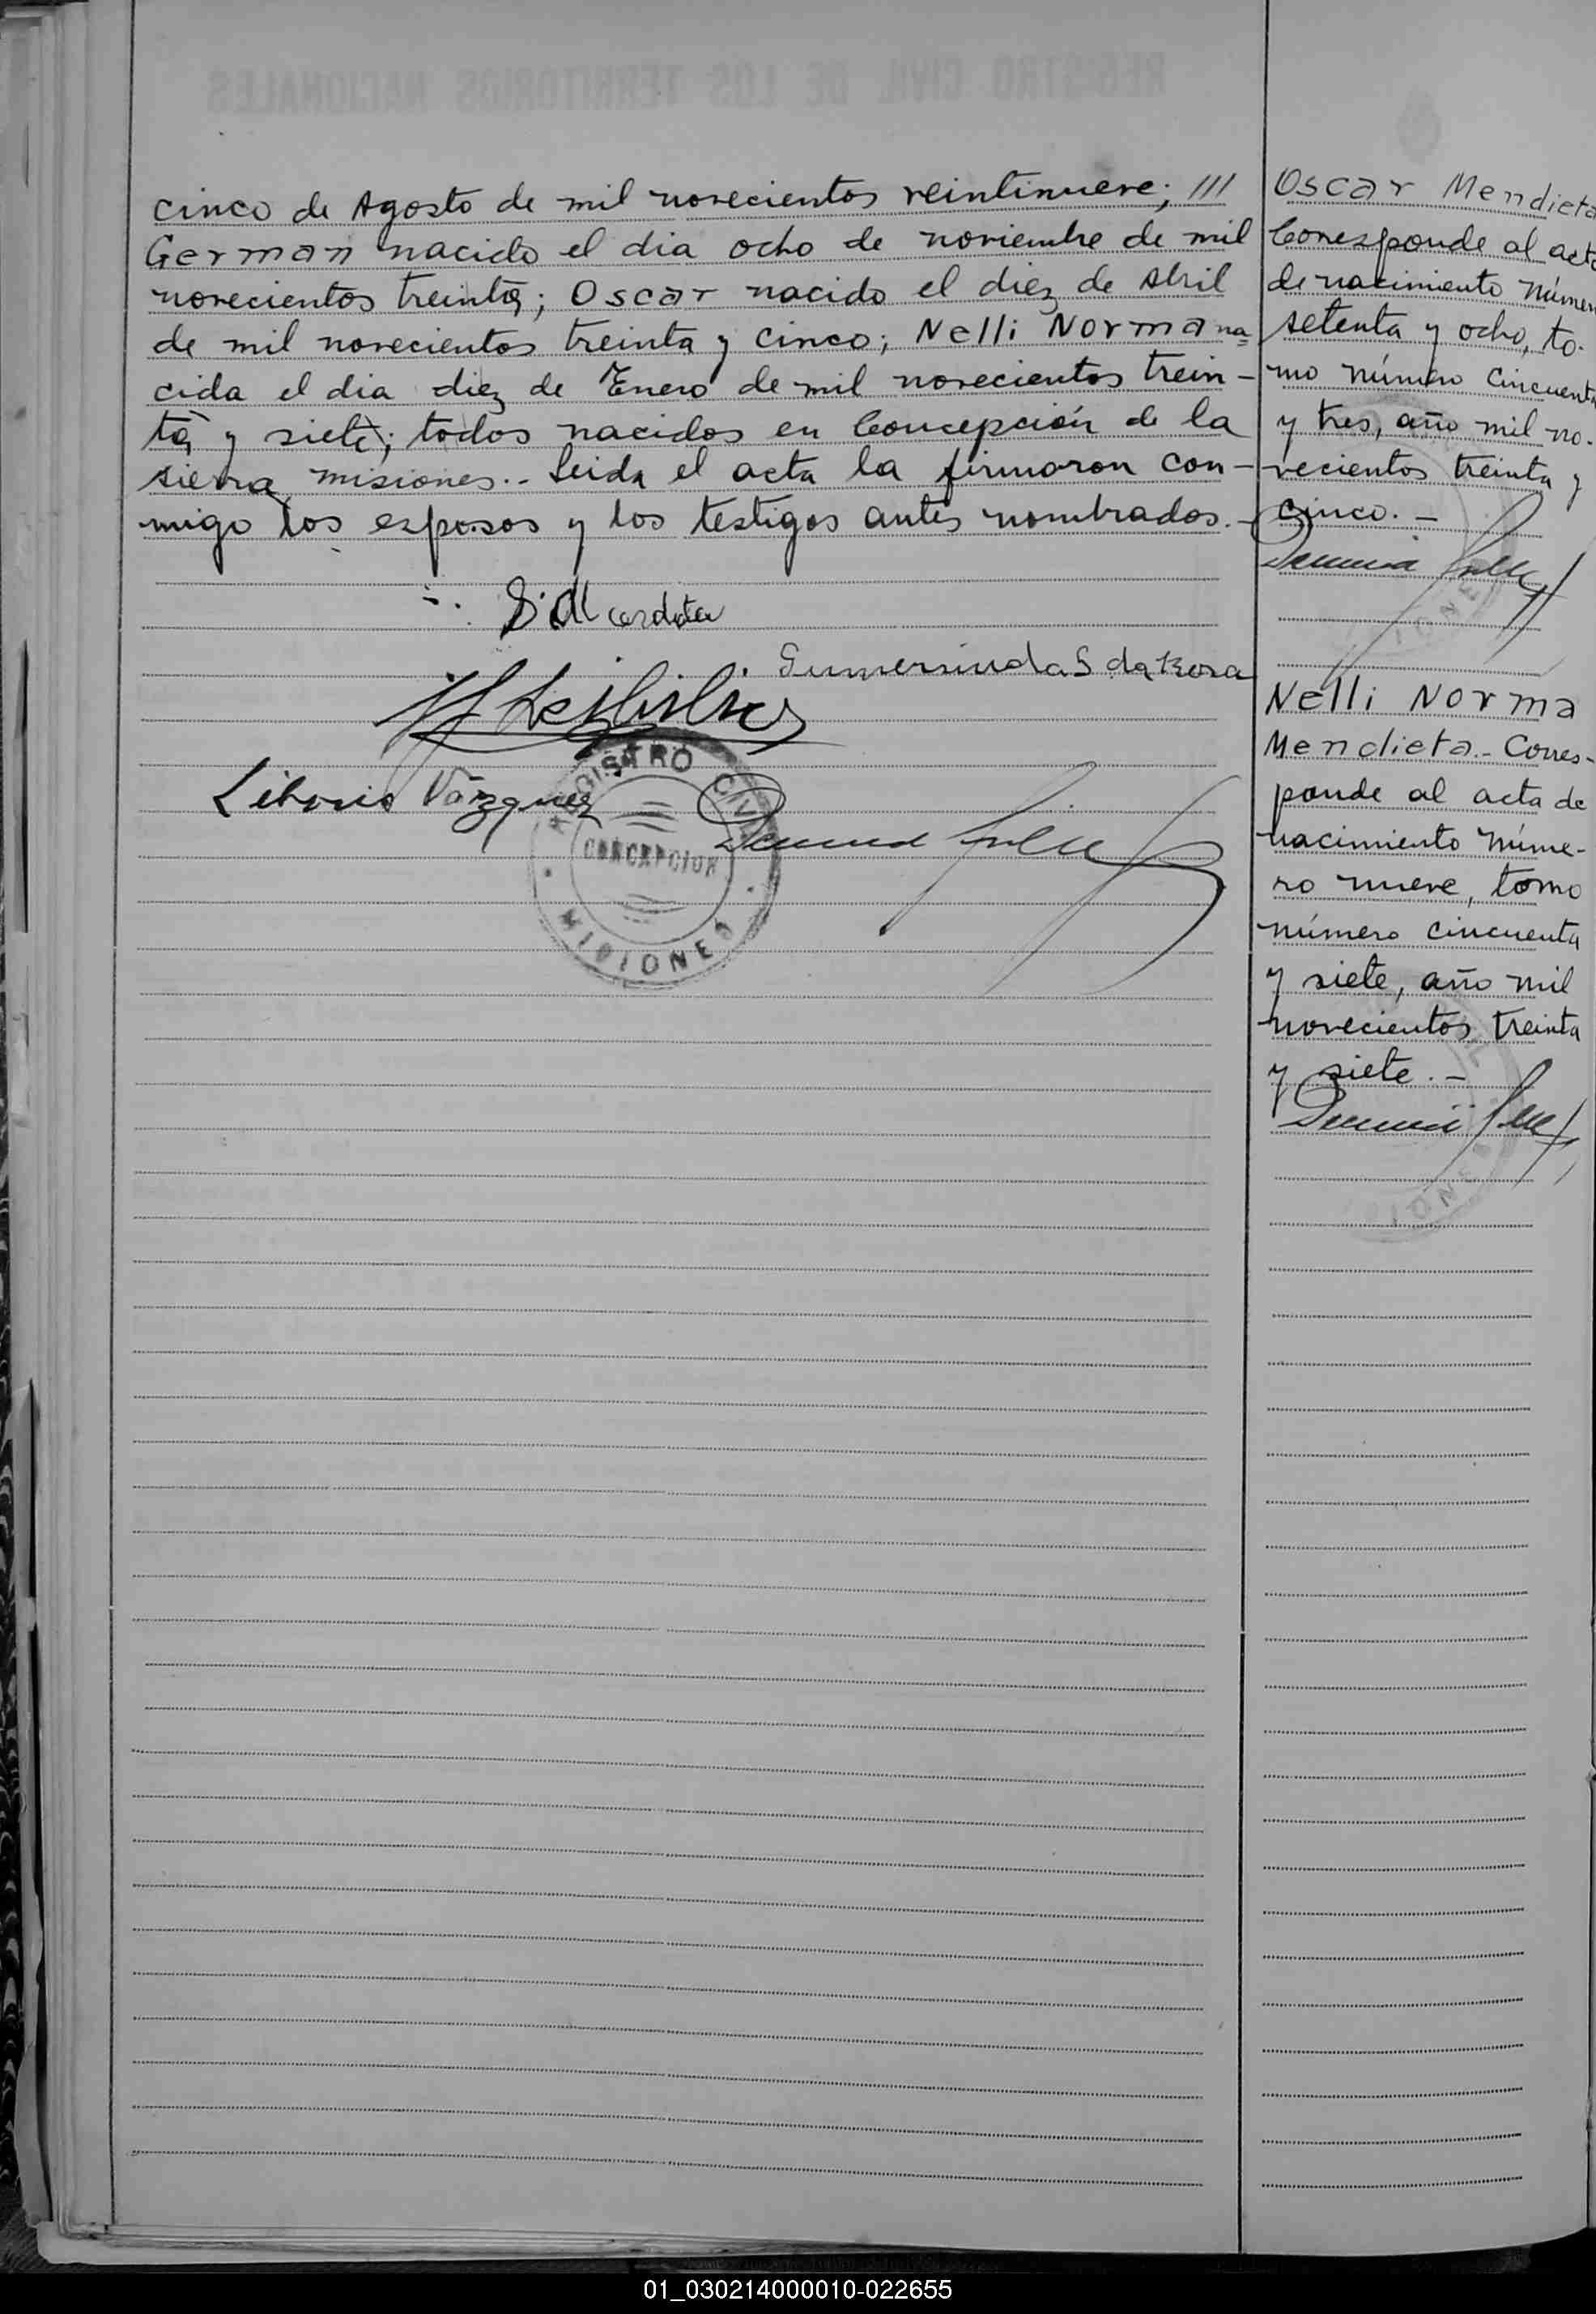 cinco de Agosto de mil novecientos veintinueve; ///
German nacido el dia ocho de noviembre de mil
novecientos treinta; Oscar nacido el diez de Abril
de mil novecientos treinta y cinco; Nelli Norma na=
cida el dia diez de Enero de mil novecientos trein-
ta y siete; todos nacidos en Concepción de la
sierra misiones.- Leida el acta la firmaron con-
migo los esposos y los testigos antes nombrados.-
Gumersinda S da Rosa
Liborio Vázquez
REGISTRO CIVIL
CONCEPCION
MISIONES
Oscar Mendieta
Corresponde al acta
de nacimiento númer
setenta y ocho, to-
mo número cincuenta
y tres, año mil no-
vecientos treinta y
cinco.-
Nelli Norma
Mendieta.- Corres-
ponde al acta de
nacimiento núme-
ro nueve, tomo
número cincuenta
y siete, año mil
novecientos treinta
y siete.-
01_030214000010-022655